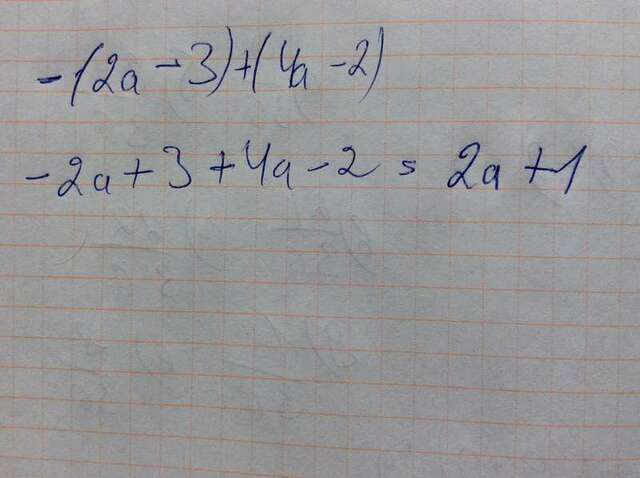 -(2a-3)+(4a-2)
-2a+3+4a-2=2a+1